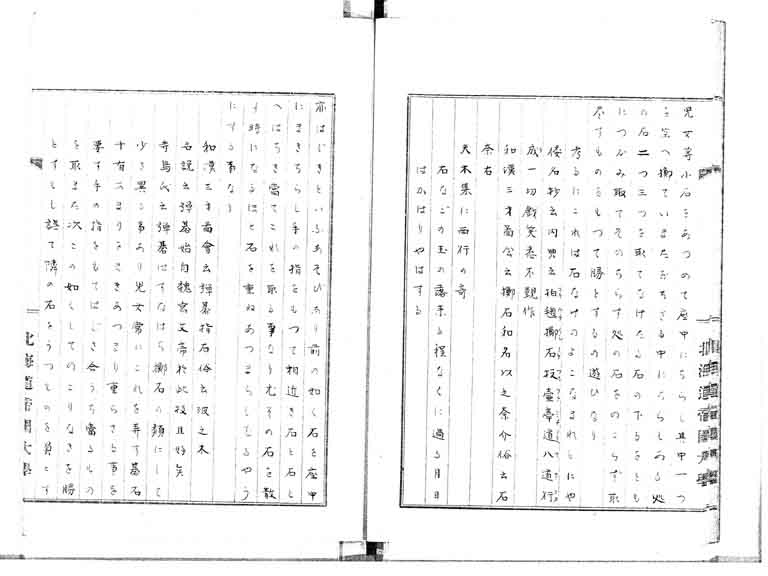 児女等小石をあつめて座中にちらし其中一つ
を空へ擲ていまだおちざる中にちらしある処
の石二つ三つを取てなげたる石の下るをとも
につかみ取てそのちらす処の石をのこらず取
尽すものをもつて勝とするの遊びなり
考るにこれは石なけのよこなまれとにや
倭名抄云内典云拍毱擲石投壺牽道八道行
成一切戯笑悉不観作
和漢三才図会云擲石和名以之奈介俗云石
奈古
夫木集に西行の哥
石なごの玉の落来る程なくに過る月日
はかはりやはする
亦はじきといふあそびあり前の如く石を座中
にまきちらし手の指をもつて相近き石と石と
へはぢき當てこれを取る事なり尤その石を数
す時になるほど石を重ねあつまらしむるやう
にする事なり
和漢三才図會云弾碁指石俗云波之木
名説云弾碁始自魏宮文帝於此技且好矣
寺島氏云弾碁はすなはち擲石の類にして
少き異る事あり児女常にこれを弄す碁石
十有あまりをまきあつまり重らざる事を
要す手の指をもてはじき合うち當るもの
を取また次この如くしてのこりなきを勝
とすもし誤て隣の石をうつものを負とす
北海道帝国大學